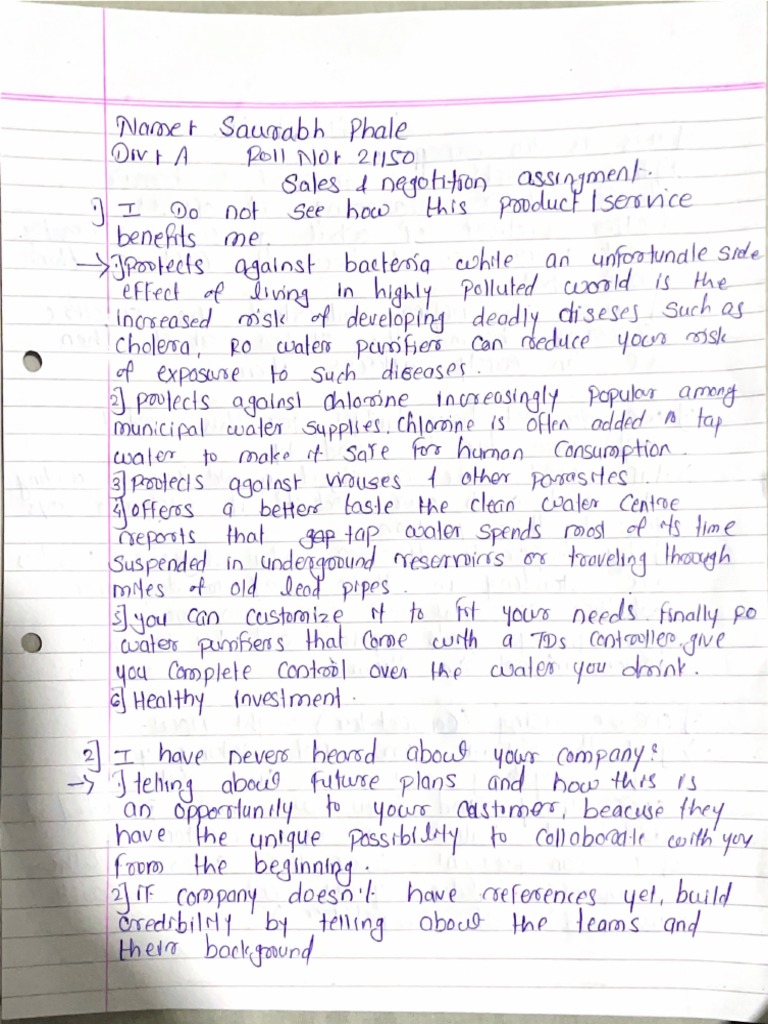 Name: Saurabh Phale
Div: A Roll No: 21150
Sales & negotition assingment.
1] I Do not see how this product/service
benefits me.
→ 1] Protects against bacteria while an unfortunale side
effect of living in highly polluted world is the
increased risk of developing deadly diseses such as
cholera, RO water purifier can reduce your risk
of exposure to such diseases.
2] protects against chlorine increasingly popular among
municipal water supplies, chlorine is often added to tap
water to make it safe for human consumption.
3] Protects against viruses & other parasites.
4] offers a better taste the clean water centre
reports that gap tap water spends most of its time
suspended in undergound reservoirs or traveling through
miles of old lead pipes.
5] you can customize it to fit your needs. finally RO
water purifiers that come with a TDs controller, give
you complete control over the water you drink.
6] Healthy Investment.
2] I have never heard about your company?
→ 1] telling about future plans and how this is
an opportunity to your castomer, beacuse they
have the unique possibility to collaborate with you
from the beginning.
2] if company doesn't have references yet, build
credibility by telling about the teams and
their background